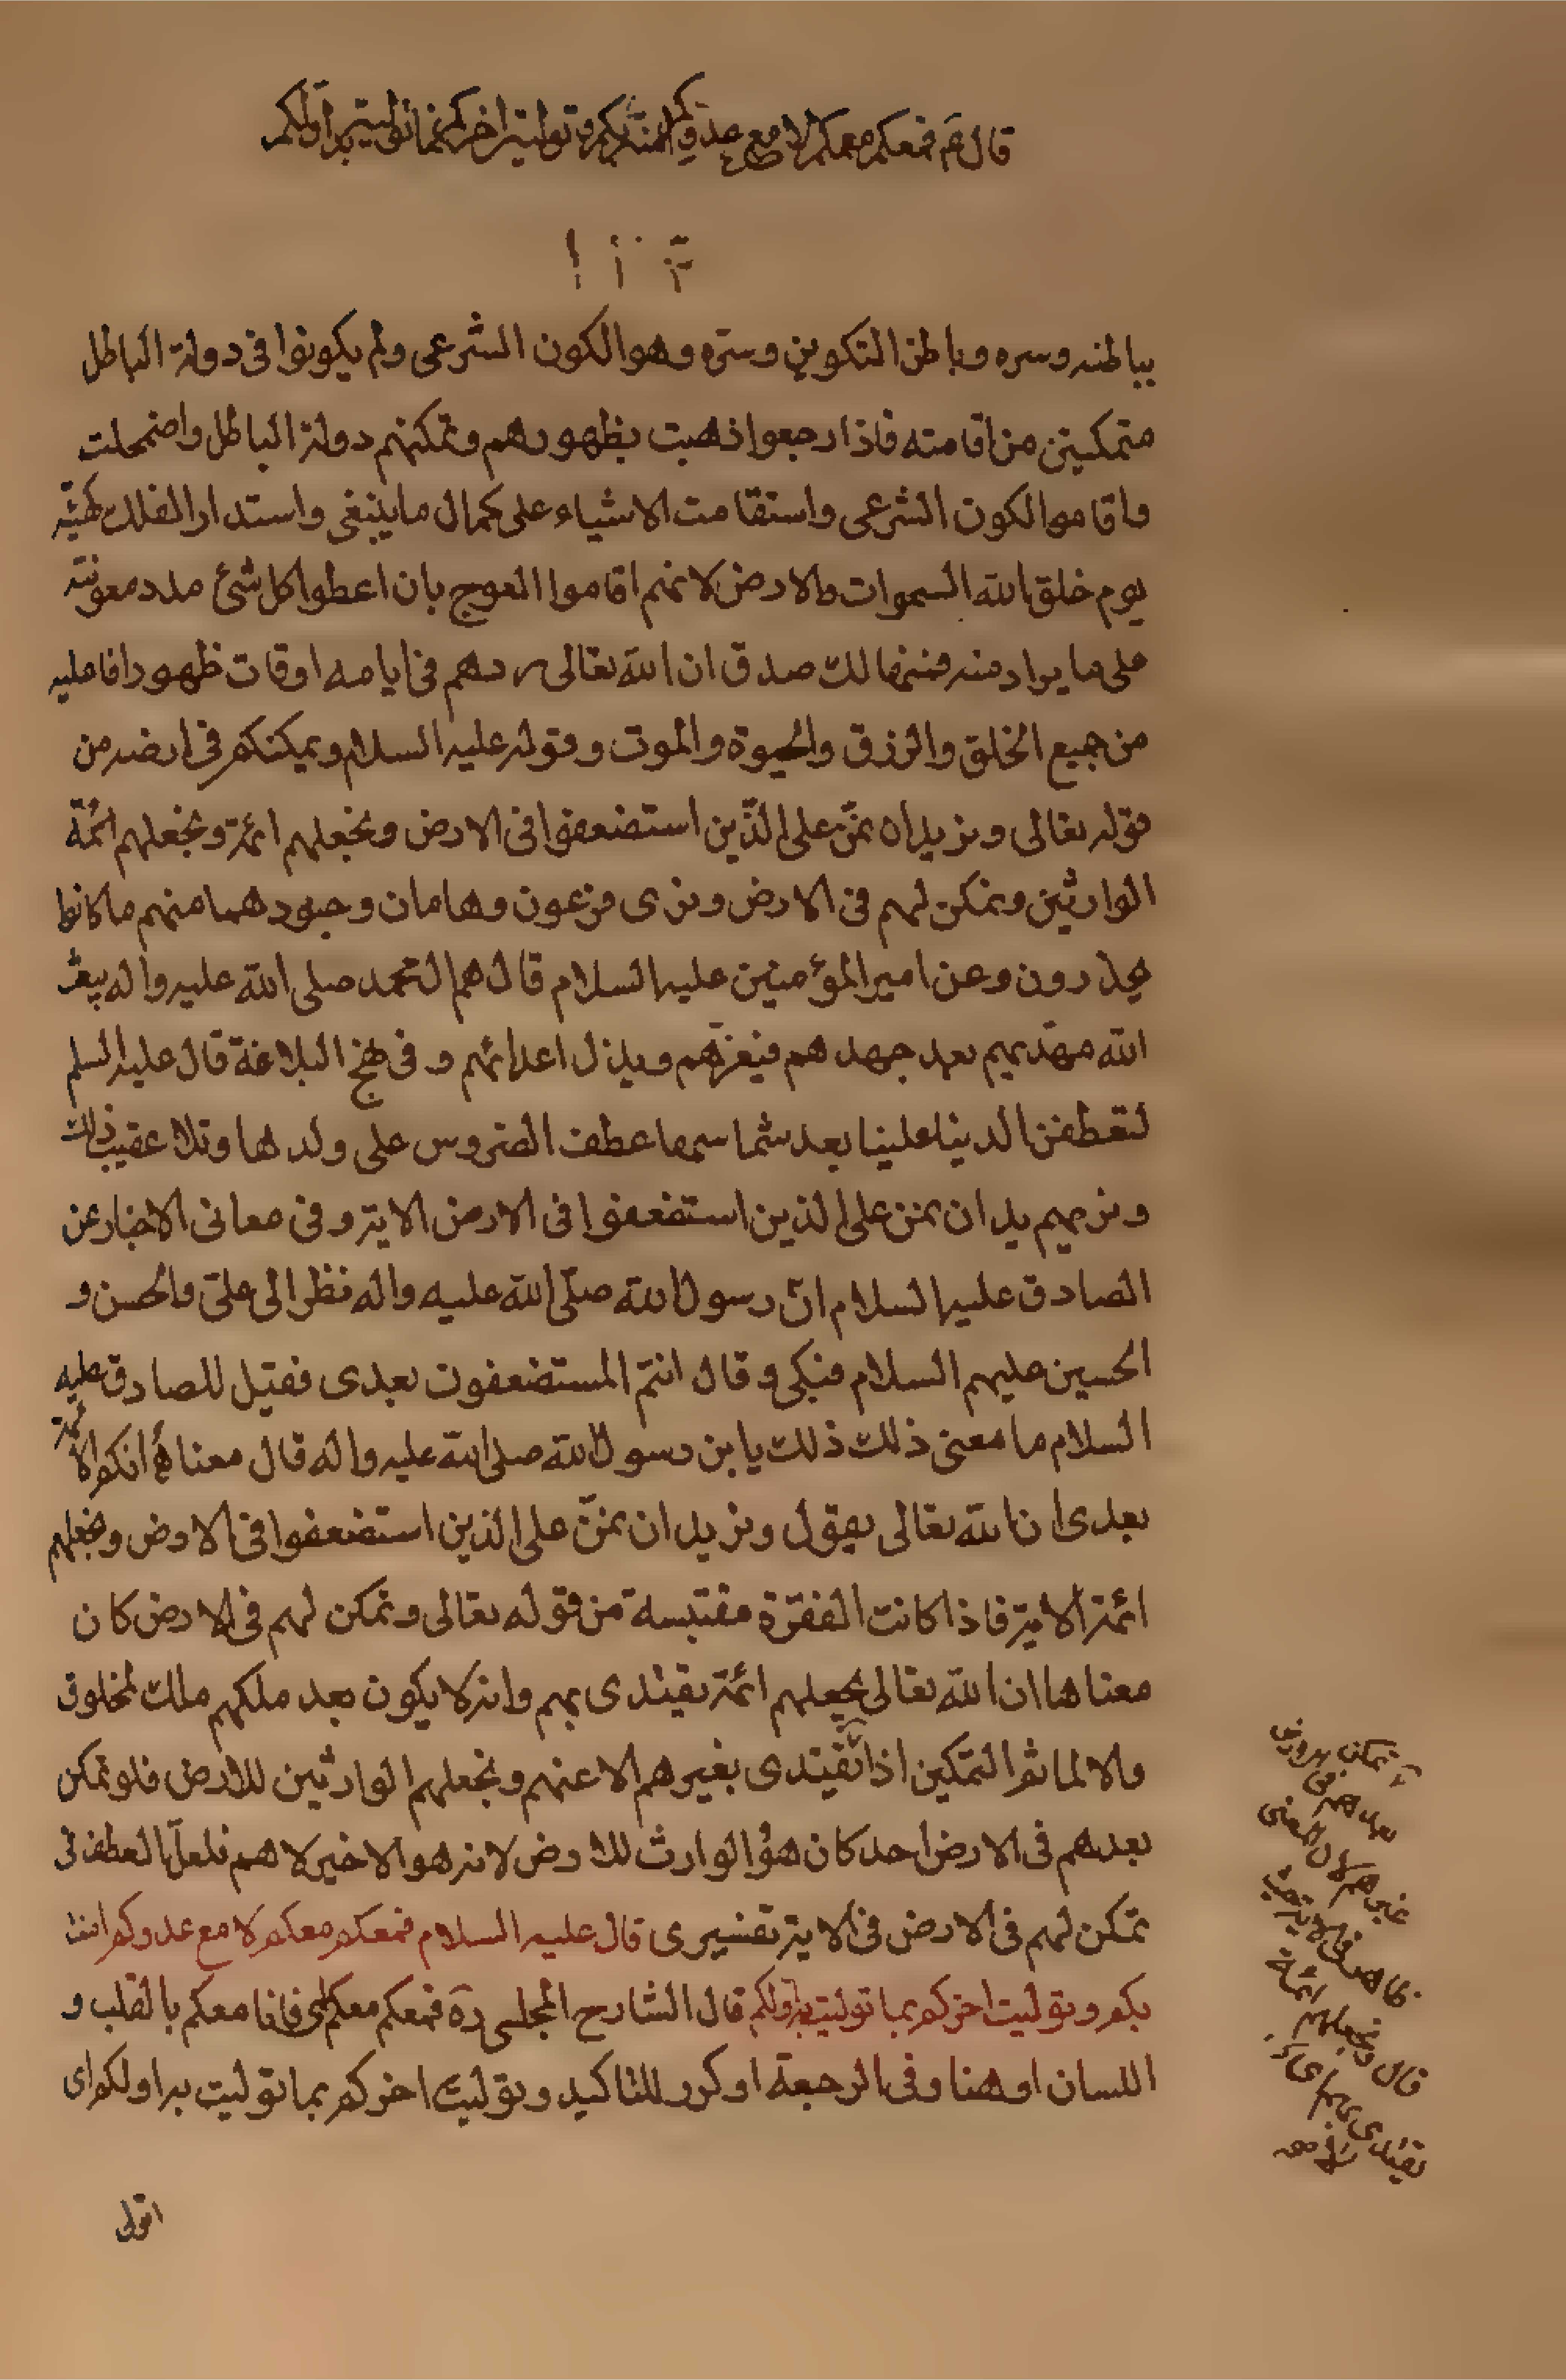 قال ع فمعكم معكم لا مع عدوكم امنت بكم وتوليت اخركم بما توليت به اولكم
بباطنه وسره وباطن التكوين وسره وهو الكون الشرعى ولم يكونوا فى دولة الباطل
متمكنين من اقامته فاذا رجعوا ذهبت بظهورهم وتمكنهم دولة الباطل واضمحلت
واقاموا الكون الشرعى واستقامت الاشياء على كمال ما ينبغى واستدار الفلك كهيئته
يوم خلق الله السموات والارض لانهم اقاموا العوج بان اعطوا كل شئ مدد معونته
على ما يراد منه فمنها لك صدق ان الله تعالى ردهم فى ايامه اوقات ظهور افاعليه
من جميع الخلق والرزق والحيوة والموت وقوله عليه السلام ويمكنكم فى ارضه من
قوله تعالى ونريد ان نمنّ على الذّين استضعفوا فى الارض ونجعلهم ائمة ونجعلهم ائمّة
الوارثين ونمكن لهم فى الارض ونرى فرعون وهامان وجنودهما منهم ما كانوا
يحذرون وعن امير المؤمنين عليه السلام قال هم ال محمد صلى الله عليه واله يبعث
الله مهديهم بعد جهدهم فيعزهم ويذل اعدائهم و فى نهج البلاغة قال عليه السلم
لتعطفن الدنيا علينا بعد شماسها عطف الضروس على ولدها وتلا عقيب ذلك
ونريهم يد ان نمن على الذين استضعفوا فى الارض الاية وفى معانى الاخبار عن
الصادق عليه السلام انّ رسول الله صلّى الله عليه واله نظر الى علىّ والحسن و
الحسين عليهم السلام فبكى وقال انتم المستضعفون بعدى فقيل للصادق عليه
السلام ما معنى ذلك ذلك يا بن رسول الله صلى الله عليه واله قال معناه انكم الائمة
بعدى ان الله تعالى يقول ونريد ان نمنّ على الذين استضعفوا فى الارض ونجعلهم
ائمة الاية فاذا كانت الفقرة مقتبسة من قوله تعالى ونمكن لهم فى الارض كان
معناها ان الله تعالى يجعلهم ائمة يقتدى بهم وانه لا يكون بعد ملكهم ملك لمخلوق
والا لما تم التمكين اذا يقتدى بغيرهم الا عنهم ونجعلهم الوارثين للارض فلو تمكن
بعدهم فى الارض احد كان هو الوارث للارض لانه هو الاخير لا هم فلعل العطف فى
نمكن لهم فى الارض فى الاية تفسيرى قال عليه السلام فمعكم معكم لا مع عدوكم امنت
بكم وتوليت اخركم بما توليت به اولكم قال الشارح المجلسى ره فمعكم معكم اى فانا معكم بالقلب و
اللسان او هنا وفى الرجعة او كرر للتاكيد وتوليت اخركم بما توليت به اولكم اى
اقول
نمكن لهم فى الارض
بعدهم فى
غيرهم لان المعنى
ظاهر فى الاية حيث
قال ونجعلهم ائمة
يقتدى بهم اى